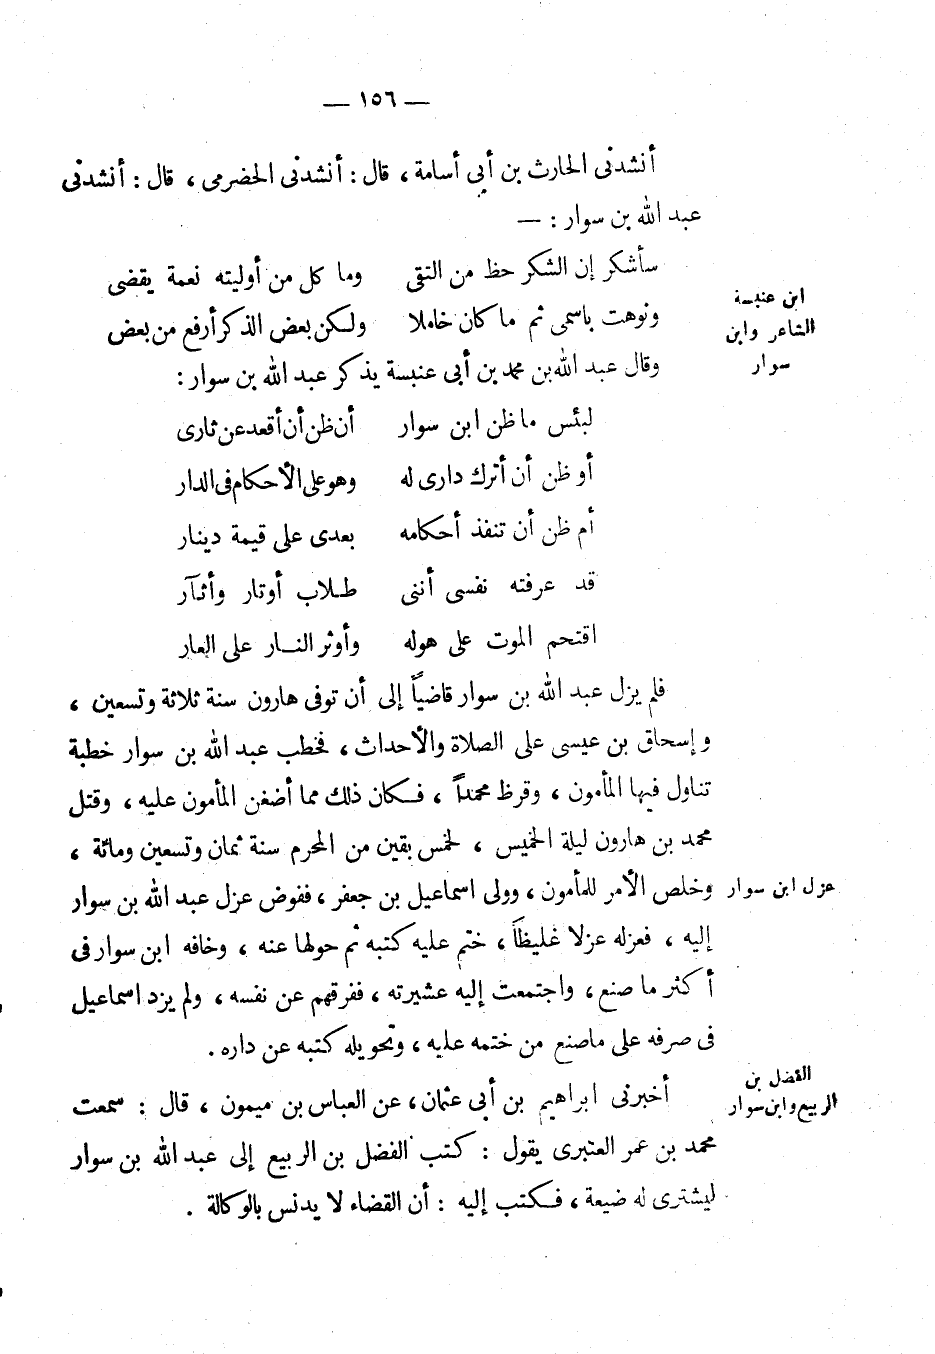 — ١٥٦ —
أنشدنى الحارث بن أبى أسامة ، قال : أنشدنى الحضرمى ، قال : أنشدنى
عبد الله بن سوار : —
سأشكر إن الشكر حظ من التقى وما كل من أوليته نعمة يقضى
ابن عنبسة
ونوهت باسمى ثم ما كان خاملا ولكن بعض الذكر أرفع من بعض
الشاعر وابن
سوار
وقال عبد الله بن محمد بن أبى عنبسة يذكر عبد الله بن سوار :
لبئس ما ظن ابن سوار أن ظن أن أقعد عن ثارى
أو ظن أن أترك دارى له وهو على الأحكام فى الدار
أم ظن أن تنفذ أحكامه بعدى على قيمة دينار
قد عرفته نفسى أننى طلاب أوتار وأثآر
اقتحم الموت على هوله وأوثر النار على العار
فلم يزل عبد الله بن سوار قاضياً إلى أن توفى هارون سنة ثلاثة وتسعين ،
وإسحاق بن عيسى على الصلاة والأحداث ، فخطب عبد الله بن سوار خطبة
تناول فيها المأمون ، وقرظ محمداً ، فكان ذلك مما أضغن المأمون عليه ، وقتل
محمد بن هارون ليلة الخميس ، لخمس بقين من المحرم سنة ثمان وتسعين ومائة ،
عزل ابن سوار
وخلص الأمر للمأمون ، وولى اسماعيل بن جعفر ، ففوض عزل عبد الله بن سوار
إليه ، فعزله عزلا غليظاً ، ختم عليه كتبه ثم حولها عنه ، وخافه ابن سوار فى
أكثر ما صنع ، واجتمعت إليه عشيرته ، ففرقهم عن نفسه ، ولم يزد اسماعيل
فى صرفه على ماصنع من ختمه عليه ، وتحويله كتبه عن داره .
الفضل بن
الربيع وابن سوار
أخبرنى ابراهيم بن أبى عثمان ، عن العباس بن ميمون ، قال : سمعت
محمد بن عمر العنبرى يقول : كتب الفضل بن الربيع إلى عبد الله بن سوار
ليشترى له ضيعة ، فكتب إليه : أن القضاء لا يدنس بالوكالة .